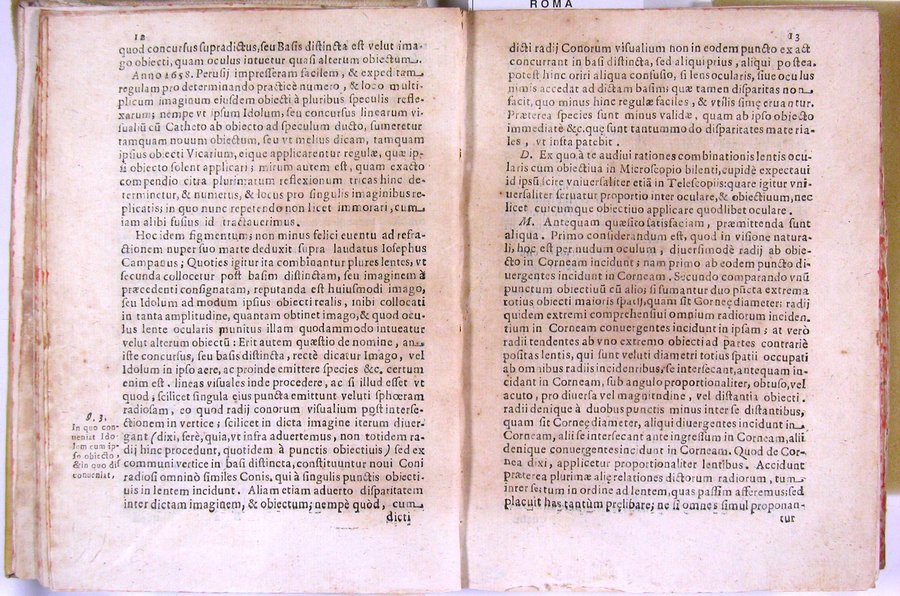 ROMA
12
quod concursus supradictus, seu Basis distincta est velut ima-
go obiecti, quam oculus intuetur quasi alterum obiectum.
Anno 1658. Perusij impresseram facilem, & expeditam
regulam pro determinando practicè numero, & loco multi-
plicum imaginum eiusdem obiecti à pluribus speculis refle-
xarum; nempè vt ipsum Idolum, seu concursus linearum vi-
sualiũ cũ Catheto ab obiecto ad speculum ducto, sumeretur
tamquam nouum obiectum, seu vt melius dicam, tamquam
ipsius obiecti Vicarium, eique applicarentur regulæ, quæ ip-
si obiecto solent applicari; mirum autem est, quam exacto
compendio citra plurimarum reflexionum tricas hinc de-
terminetur, & numerus, & locus pro singulis imaginibus re-
plicatis; in quo nunc repetendo non licet immorari, cum
iam alibi fusius id tractauerimus.
Hoc idem figmentum, non minus felici euentu ad refra-
ctionem nuper suo marte deduxit supra laudatus Iosephus
Campanus; Quoties igitur ita combinantur plures lentes, vt
secunda collocetur post basim distinctam, seu imaginem à
præcedenti consignatam, reputanda est huiusmodi imago,
seu Idolum ad modum ipsius obiecti realis, inibi collocati
in tanta amplitudine, quantam obtinet imago, & quod ocu-
lus lente ocularis munitus illam quodammodo intueatur
velut alterum obiectũ: Erit autem quæstio de nomine, an
iste concursus, seu basis distincta, rectè dicatur Imago, vel
Idolum in ipso aere, ac proinde emittere species &c. certum
enim est. lineas visuales inde procedere, ac si illud esset vt
quod, scilicet singula eius puncta emittunt veluti sphœram
radiosam, eo quod radij conorum visualium post interse-
ctionem in vertice; scilicet in dicta imagine iterum diuer-
gant (dixi, ferè, quia, vt infra aduertemus, non totidem ra-
dij hinc procedunt, quotidem à punctis obiectiuis) sed ex
communi vertice in basi distincta, constituuntur noui Coni
radiosi omninò similes Conis, qui à singulis punctis obiecti-
uis in lentem incidunt. Aliam etiam aduerto disparitatem
inter dictam imaginem, & obiectum; nempè quòd, cum
dicti
9. 3.
In quo con-
ueniat Ido
lum cum ip-
so obiecto,
& in quo dis
conueniat,
13
dicti radij Conorum visualium non in eodem puncto exact
concurrant in basi distincta, sed aliqui prius, aliqui postea.
potest hinc oriri aliqua confusio, si lens ocularis, siue oculus
nimis accedat ad dictam basim: quæ tamen disparitas non
facit, quo minus hinc regulæ faciles, & vtilis simẹ eruantur.
Præterea species sunt minus validæ, quam ab ipso obiecto
immediatè &c. quę sunt tantummodo disparitates materia-
les, vt insta patebit.
D. Ex quo à te audiui rationes combinationis lentis ocu-
laris cum obiectiua in Microscopio bilenti, cupidè expectaui
id ipsũ scire vniuersaliter etiã in Telescopiis: quare igitur vni-
uersaliter seruatur proportio inter oculare, & obiectiuum, nec
licet cuicumque obiectiuo applicare quodlibet oculare.
M. Antequam quæsito satisfaciam, præmittenda sunt
aliqua. Primo considerandum est, quod in visione natura-
li, hoc est per nudum oculum, diuersimodè radij ab obie-
cto in Corneam incidunt; nam primo ab eodem puncto di-
uergentes incidunt in Corneam. Secundo comparando vnũ
punctum obiectiuũ cũ alio; si sumantur duo pũcta extrema
totius obiecti maioris spatij, quam sit Gorneę diameter: radij
quidem extremi comprehensiui omnium radiorum inciden.
tium in Corneam conuergentes incidunt in ipsam; at verò
radii tendentes ab vno extremo obiecti ad partes contrariè
positas lentis, qui sunt veluti diametri totius spatii occupati
ab omnibus radiis incidentibus, se intersecant, antequam in-
cidant in Corneam, sub angulo proportionaliter, obtuso, vel
acuto, pro diuersa vel magnitudine, vel distantia obiecti.
radii denique à duobus punctis minus inter se distantibus,
quam sit Corneę diameter, aliqui diuergentes incidunt in
Corneam, alii se intersecant ante ingressum in Corneam, alii
denique conuergentes incidunt in Corneam. Quod de Cor-
nea dixi, applicetur proportionaliter lentibus. Accidunt
præterea plurimæ alię relationes dictorum radiorum, tum
inter se, tum in ordine ad lentem, quas passim afferemus; sed
placuit has tantùm pręlibare; ne si omnes simul proponan-
tur